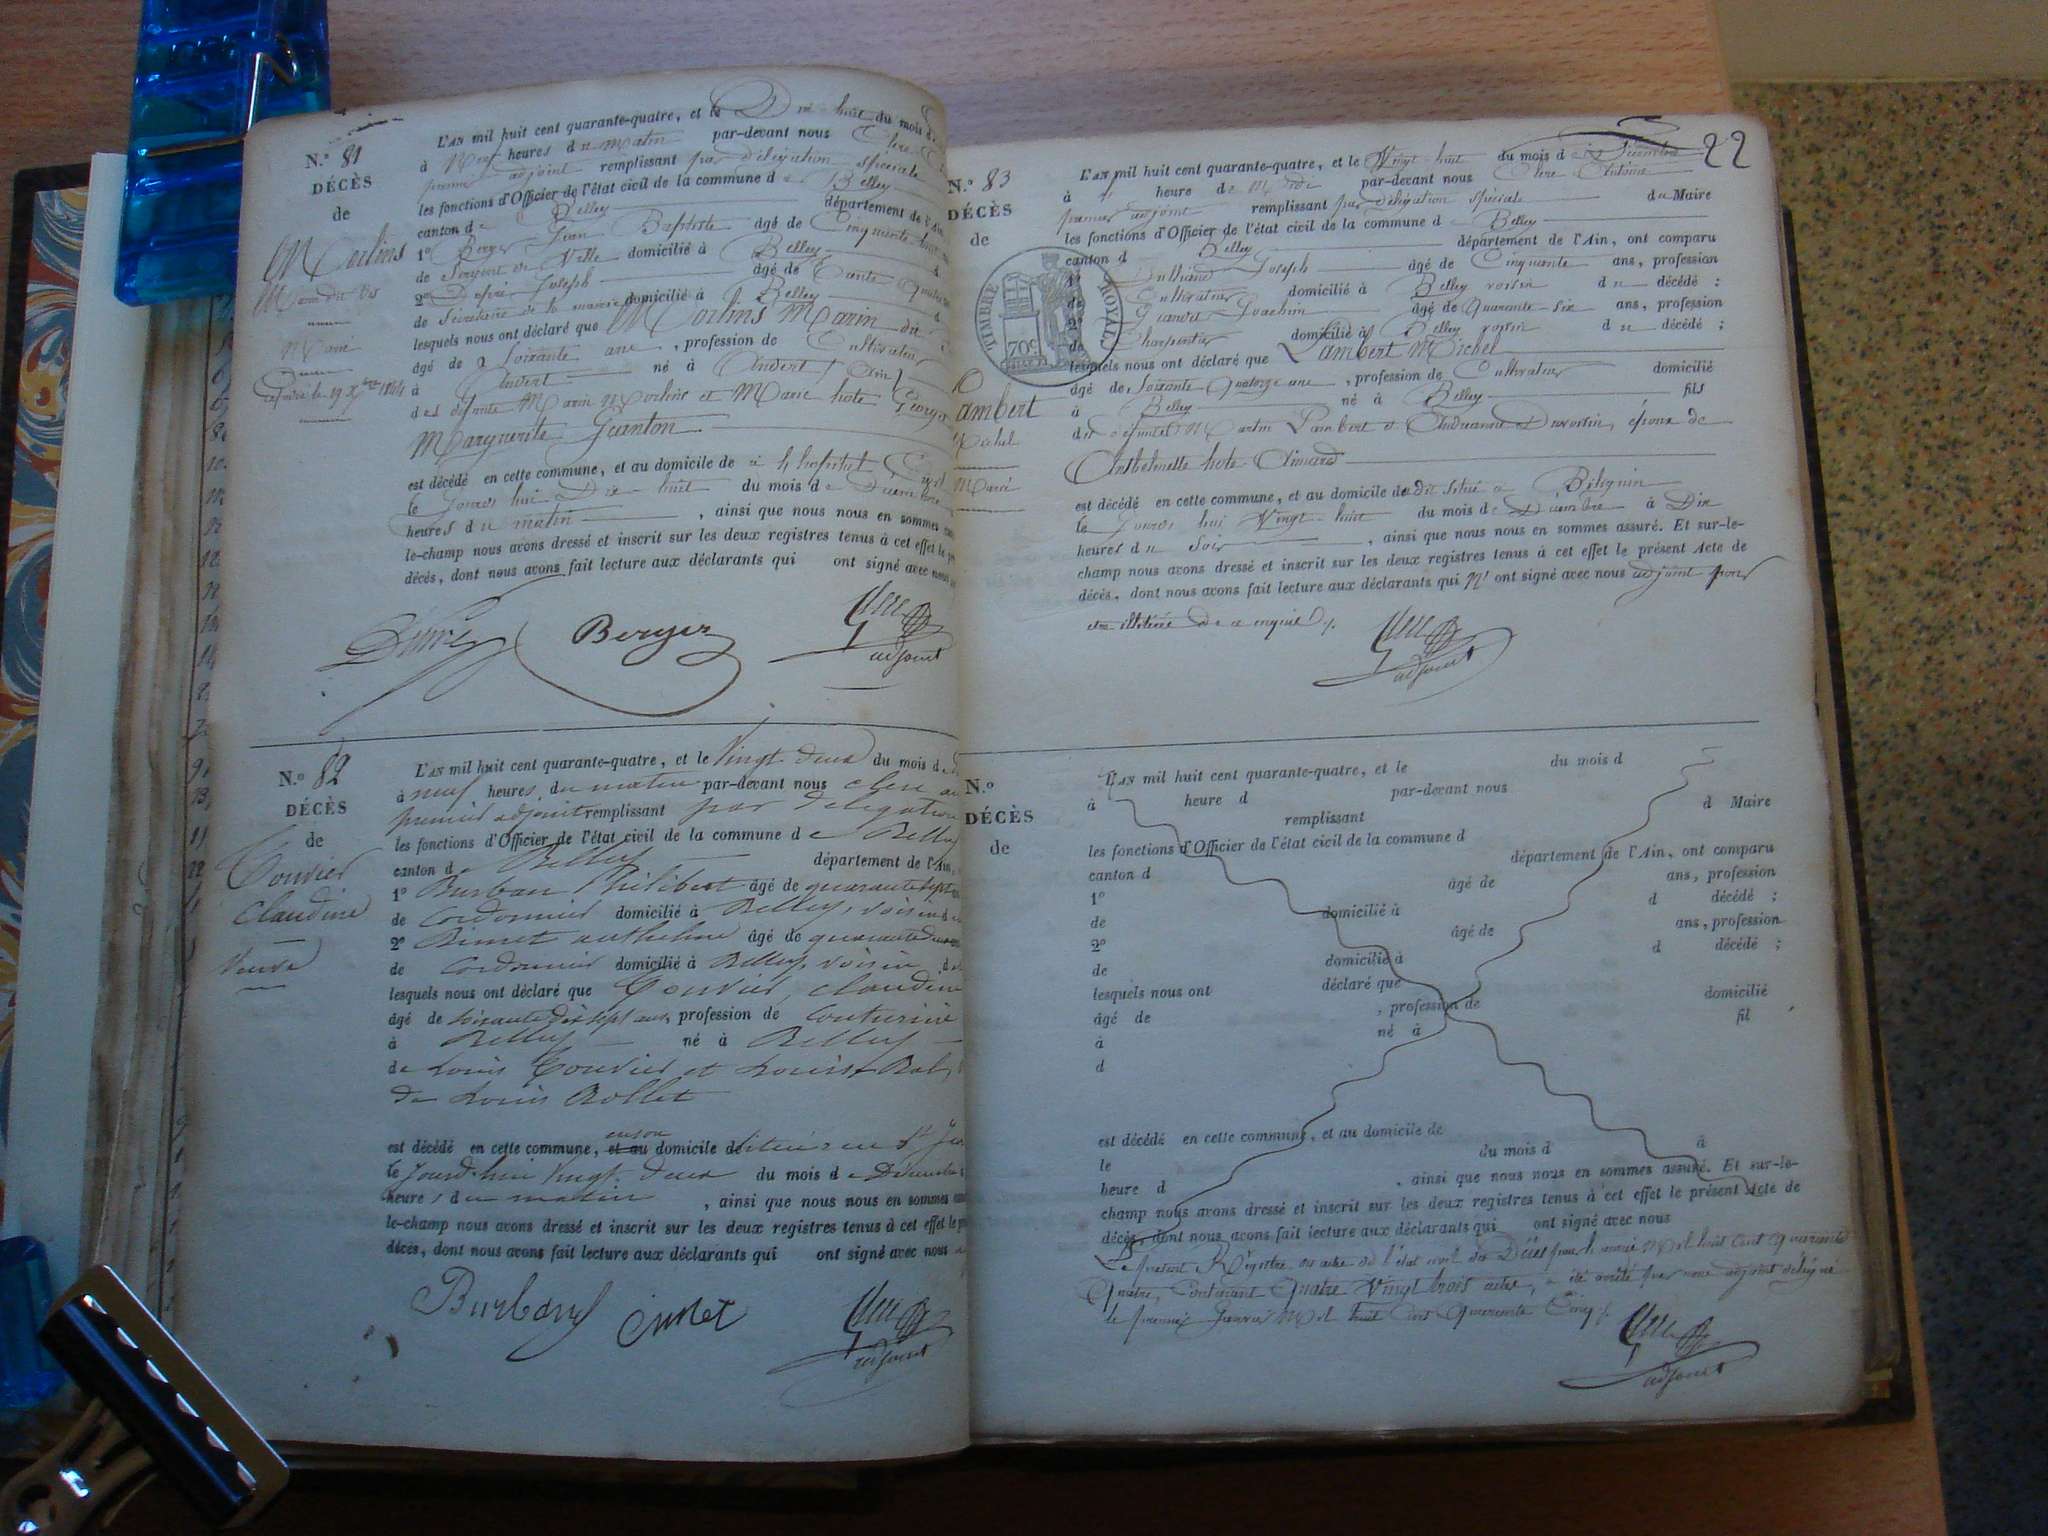 N.º 81
DÉCÈS
de
Morlins
Marié
L'AN mil huit cent quarante-quatre, et le Dix-huit du mois d
à Neuf heures du matin par-devant nous Clerc
premier adjoint remplissant par délégation spéciale
les fonctions d'Officier de l'état civil de la commune de Belley
canton de Belley département de l'Ain,
1º Berger Jean Baptiste âgé de Cinquante
de Sergent de Ville domicilié à Belley
2º Dupré Joseph âgé de Trente Quatre
de Secrétaire de la mairie domicilié à Belley
lesquels nous ont déclaré que Morlins Marin dit
âgé de Soixante ans, profession de Cultivateur
à Andert né à Andert (Ain)
des défunts Marin Morlins et Marie
Marguerite Guinton
est décédé en cette commune, et au domicile de à l'hôpital
le Jourd'hui Dix-huit du mois de Décembre
heures du matin, ainsi que nous nous en sommes
le-champ nous avons dressé et inscrit sur les deux registres tenus à cet effet le
décès, dont nous avons fait lecture aux déclarants qui ont signé avec nous
Dupré Berger Clerc
adjoint
N.º 82
DÉCÈS
de
Touvier
Claudine
Veuve
L'AN mil huit cent quarante-quatre, et le Vingt-deux du mois d
à neuf heures du matin par-devant nous clerc
premier adjoint remplissant par délégation
les fonctions d'Officier de l'état civil de la commune de Belley
canton de Belley département de l'Ain,
1º Burban Philibert âgé de quarante sept
de Cordonnier domicilié à Belley, voisin
2º anthelme âgé de quarante
de Cordonnier domicilié à Belley, voisin
lesquels nous ont déclaré que Touvier, claudine
âgé de soixante dix sept ans, profession de Couturière
à Belley né à Belley
de Louis Touvier et Louise
de Louis Rollet
est décédé en cette commune, et au domicile de située en St
le Jourd'hui vingt-deux du mois de Décembre
heures du matin, ainsi que nous nous en sommes
le-champ nous avons dressé et inscrit sur les deux registres tenus à cet effet le
décès, dont nous avons fait lecture aux déclarants qui ont signé avec nous
Burban Clerc
adjoint
22
N.º 83
DÉCÈS
de
TIMBRE ROYAL
70c
Lambert
Michel
Marié
L'AN mil huit cent quarante-quatre, et le Vingt-huit du mois de Décembre
à heure de Midi par-devant nous Clerc Antoine
premier adjoint remplissant par délégation spéciale du Maire
les fonctions d'Officier de l'état civil de la commune de Belley
canton d Belley département de l'Ain, ont comparu
1º Joseph âgé de Cinquante ans, profession
de Cultivateur domicilié à Belley voisin du décédé ;
2º Joachim âgé de Quarante-six ans, profession
de Charpentier domicilié à Belley voisin du décédé ;
lesquels nous ont déclaré que Lambert Michel
âgé de Soixante Quatorze ans, profession de Cultivateur domicilié
à Belley né à Belley fils
des défunts Martin Lambert et Andréanne Duvortin, époux de
Anthelmette
est décédé en cette commune, et au domicile du dit situé à Billignin
le Jourd'hui Vingt-huit du mois de Décembre à Dix
heures du Soir, ainsi que nous nous en sommes assuré. Et sur-le-
champ nous avons dressé et inscrit sur les deux registres tenus à cet effet le présent Acte de
décès, dont nous avons fait lecture aux déclarants qui n'ont signé avec nous adjoint pour
être illitérés de ce enquis
Clerc
adjoint
N.º
DÉCÈS
de
L'AN mil huit cent quarante-quatre, et le du mois d
à heure d par-devant nous
remplissant d Maire
les fonctions d'Officier de l'état civil de la commune d
canton d département de l'Ain, ont comparu
1º âgé de ans, profession
de domicilié à d décédé ;
2º âgé de ans, profession
de domicilié à d décédé ;
lesquels nous ont déclaré que
âgé de , profession de domicilié
à né à fil
d
est décédé en cette commune, et au domicile de
le du mois d à
heure d , ainsi que nous nous en sommes assuré. Et sur-le-
champ nous avons dressé et inscrit sur les deux registres tenus à cet effet le présent Acte de
décès, dont nous avons fait lecture aux déclarants qui ont signé avec nous
Le présent Régistre aux actes de l'état civil des Décès pour l'année Mil huit Cent quarante
Quatre, Contenant Quatre Vingt trois actes, a été arrêté par nous adjoint délégué
le premier Janvier Mil huit Cent Quarante Cinq
Clerc
adjoint